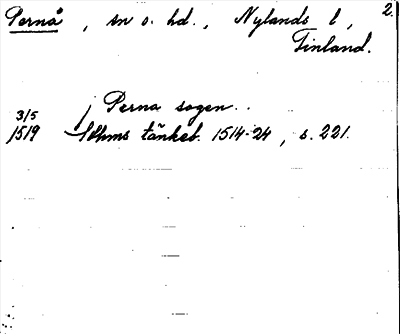 Pernå, sn o. hd., Nylands l, 2.
Finland.
3/5 j Perna sogen..
1519 Sthms tänkeb. 1514-24, s. 221.